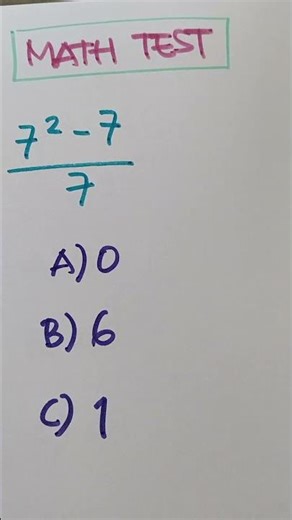 MATH TEST
7² - 7
7
A) 0
B) 6
C) 1